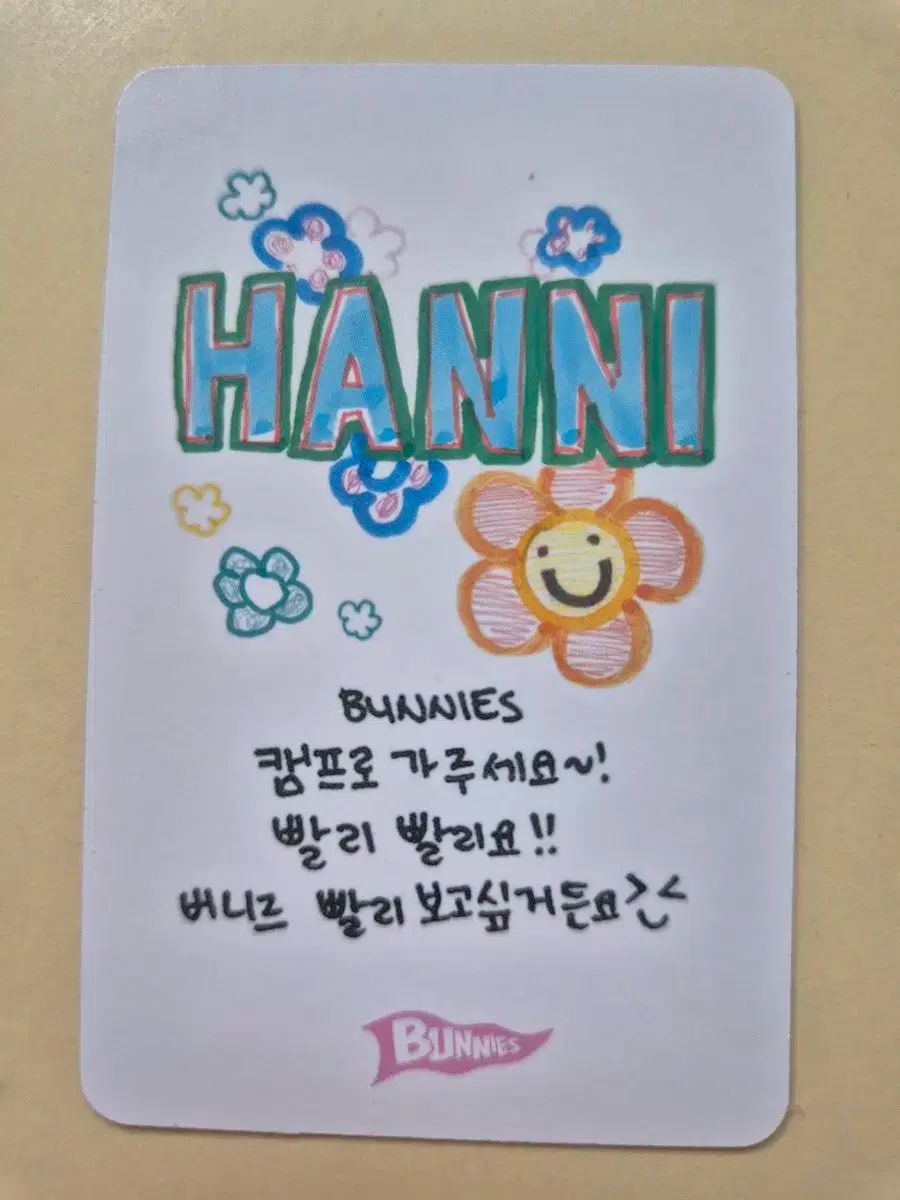 HANNI
BUNNIES
캠프로 가주세요~!
빨리 빨리요!!
버니즈 빨리 보고싶거든요>.<
BUNNIES